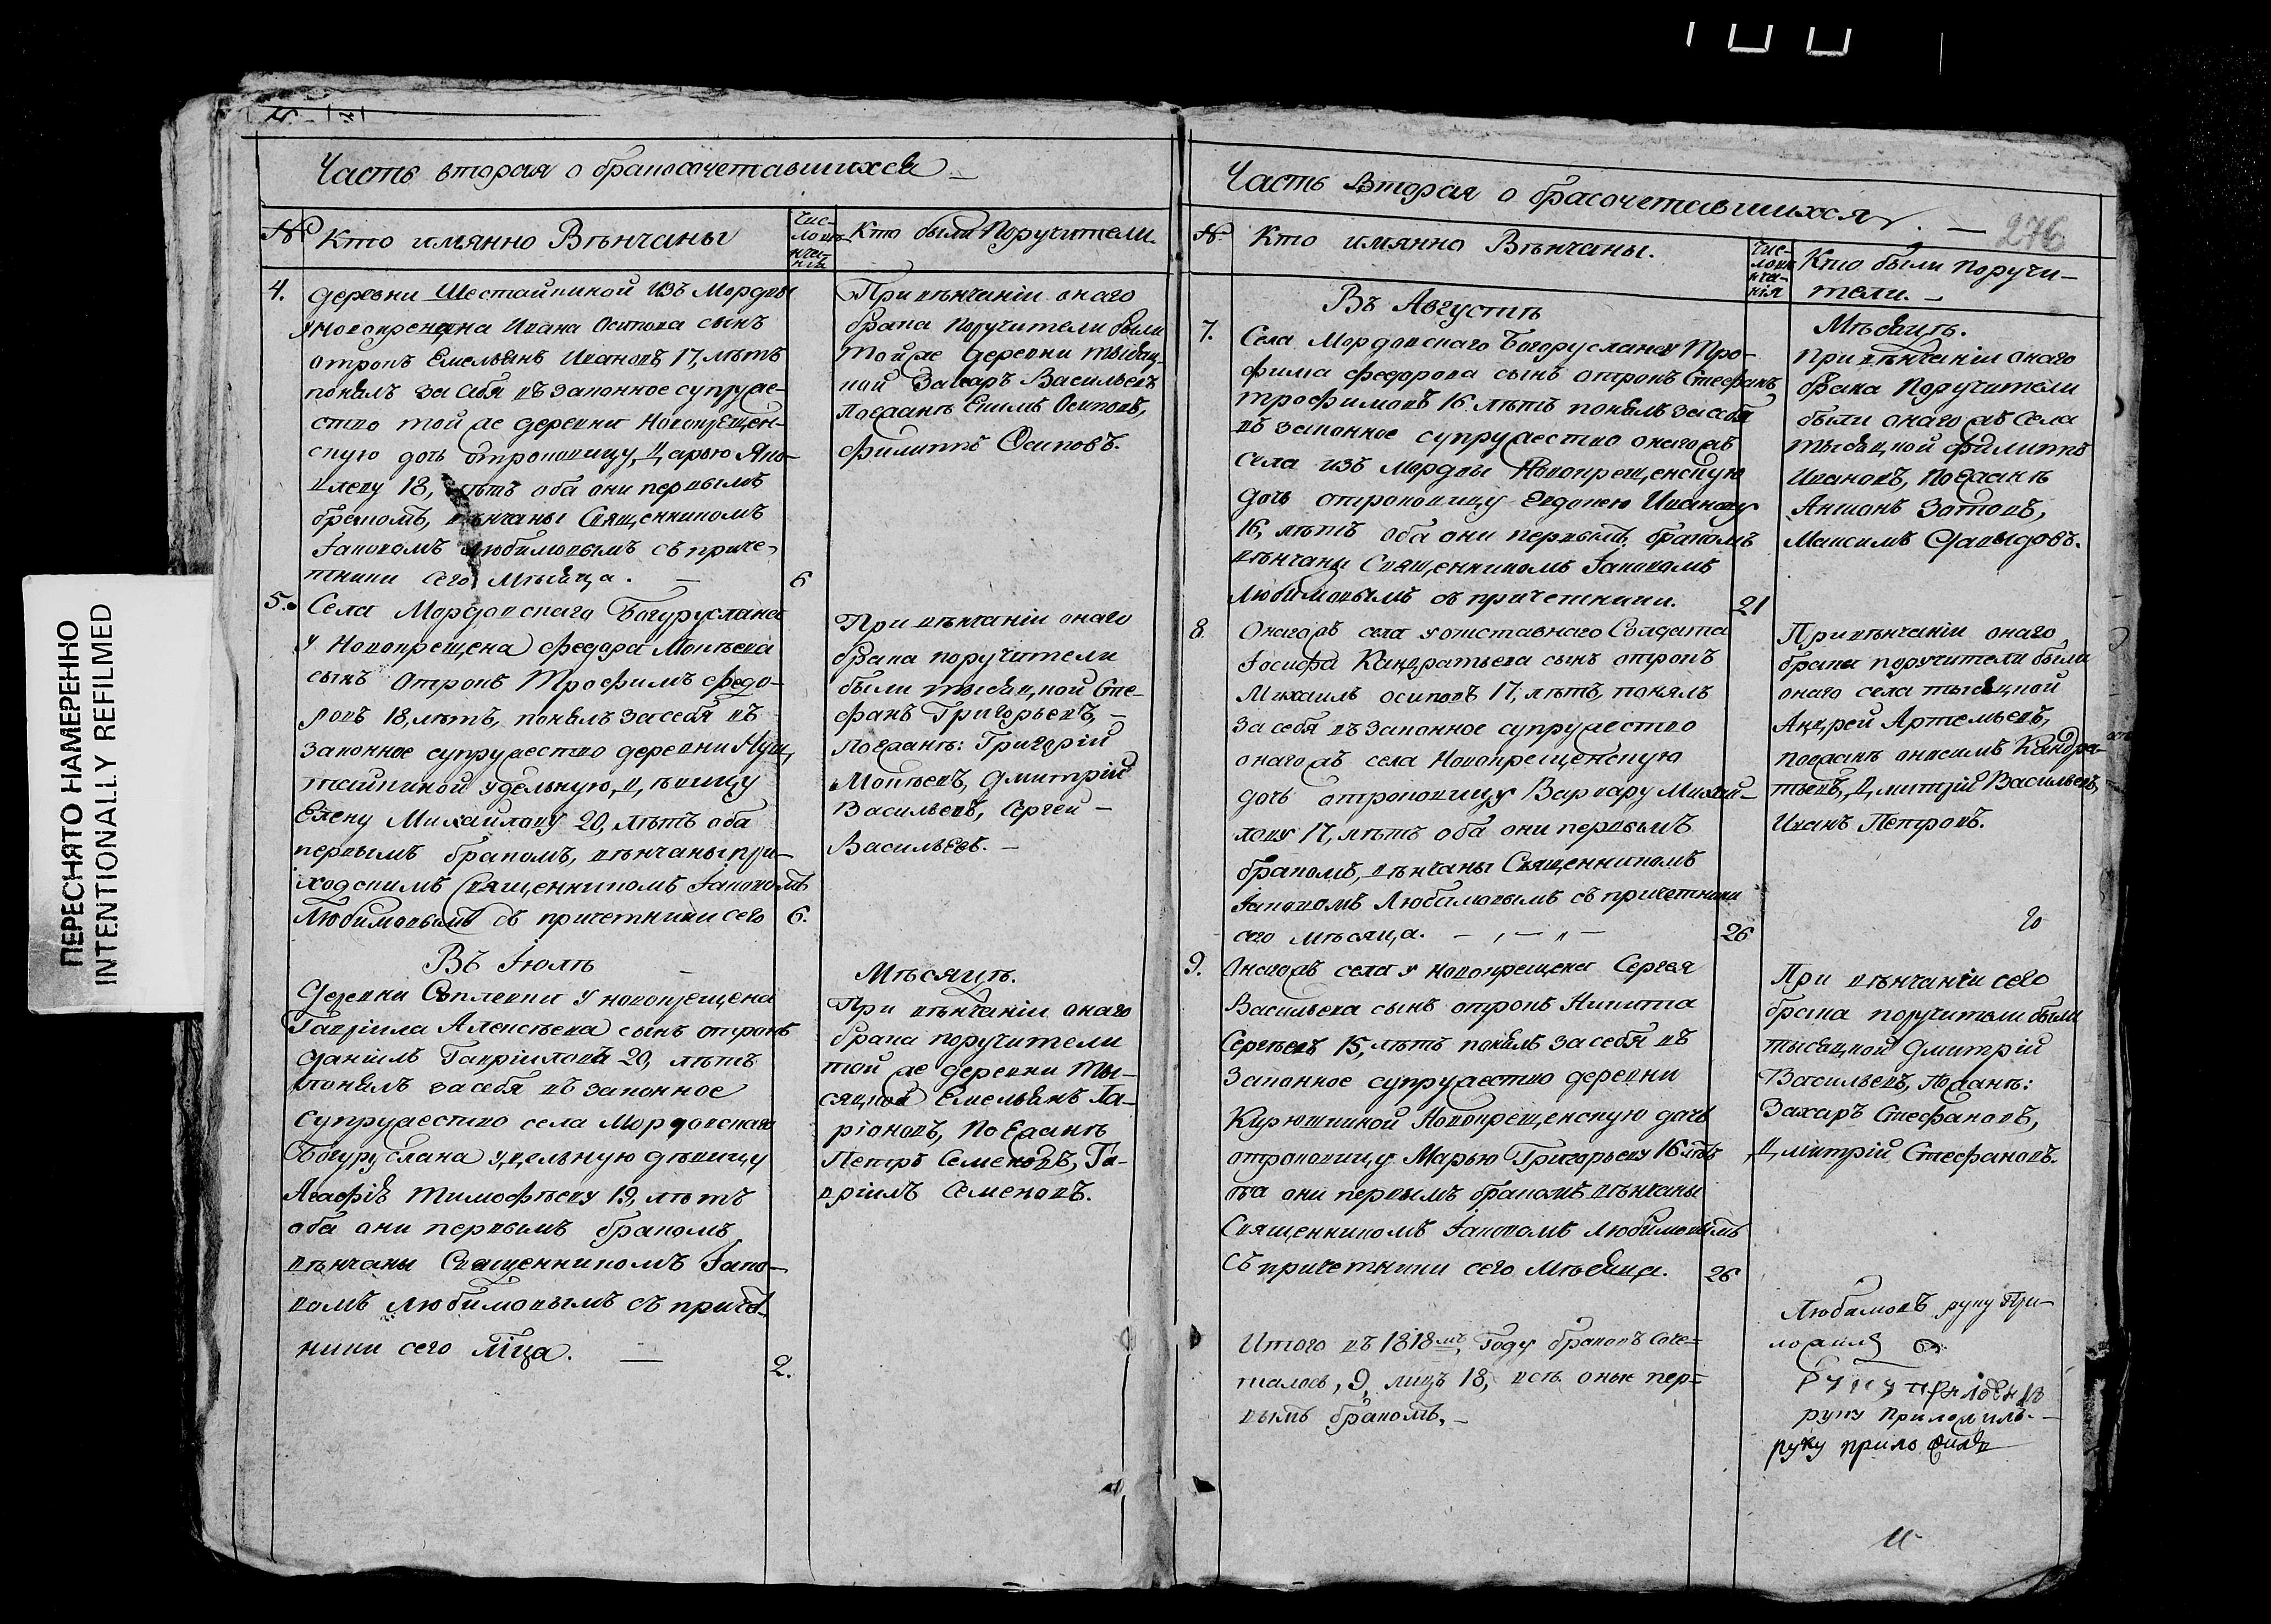 Часть вторая о бракосочетавшихся
№
Кто имянно Вѣнчаны
Чис-
ло вѣ-
нча-
нія
Кто были Поручители.
4.
деревни Шестайкиной изъ Мордвы
у новокрещена Ивана Осипова сынъ
отрокъ Емельянъ Ивановъ 17, лѣтъ
понялъ за себя въ законное супруже-
ство той же деревни Новокрещен-
скую дочь отроковицу Дарью Яко-
влеву 18, лѣтъ оба они первымъ
бракомъ, вѣнчаны Священникомъ
Іаковомъ Любимовымъ съ приче-
тники сего Мѣсяца. —
6
При вѣнчаніи онаго
брака Поручители были
тойже деревни тысяц-
кой Захаръ Васильевъ
Поезжанѣ Екимъ Осиповъ,
Филиппъ Осиповъ.
5.
Села Мордовскаго Богуруслана
у Новокрещена Федора Мокѣева
сынъ Отрокъ Трофимъ Федо-
ровъ 18, лѣтъ, понялъ за себя въ
законное супружество деревни
удельную дѣвицу
Елену Михайлову 20, лѣтъ оба
первымъ бракомъ, вѣнчаны при-
ходскимъ Священникомъ Іаковомъ
Любимовымъ съ причетники сего
6.
При вѣнчаніи онаго
брака поручители
были тысяцкой Сте-
фанъ Григорьевъ, —
Поезжанѣ: Григорій
Мокѣевъ, Дмитрій
Васильевъ, Сергей —
Васильевъ. —
Въ Іюлѣ
Мѣсяцѣ.
Деревни Сѣплевки у новокрещена
Гавріила Алексѣева сынъ отрокъ
Даніилъ Гавріиловъ 20, лѣтъ
понялъ за себя въ законное
супружество села Мордовскаго
Богуруслана удельную дѣвицу
Агафію Тимофѣеву 19, лѣтъ
оба они первымъ бракомъ
вѣнчаны Священникомъ Іако-
вомъ Любимовымъ съ причет-
ники сего Мца. —
2.
При вѣнчаніи онаго
брака поручители
той же деревни Ты-
сяцкой Емельянъ Ла-
ріоновъ, Поезжанѣ
Петръ Семеновъ, Га-
вріилъ Семеновъ.
Часть вторая о брасочетавшихся. —
276
№
Кто имянно Вѣнчаны.
Чис-
ло вѣ-
нча-
нія
Кто были Поручи-
тели. —
Въ Августѣ
Мѣсяцѣ.
7.
Села Мордовскаго Богоруслана у Тро-
фима Федорова сынъ отрокъ Стефанъ
Трофимовъ 16 лѣтъ понялъ за себя
въ законное супружество онагожъ
села изъ Мордвы Новокрещенскую
дочь отроковицу Евдокею Иванову
16, лѣтъ оба они первымъ бракомъ
вѣнчаны Священникомъ Іаковомъ
Любимовымъ съ причетники.
21
При вѣнчаніи онаго
брака Поручители
были онагожъ Села
тысяцкой Филиппъ
Ивановъ, Поезжанѣ
Антонъ Зотовъ,
Максимъ Давыдовъ.
8.
Онагожъ села у отставнаго Солдата
Іосифа Кандратьева сынъ отрокъ
Михаилъ Осиповъ 17, лѣтъ, понялъ
за себя въ законное супружество
онагожъ села Новокрещенскую
дочь отроковицу Варвару Михай-
лову 17, лѣтъ оба они первымъ
бракомъ, вѣнчаны Священникомъ
Іаковомъ Любимовымъ съ причетники
сего мѣсяца. —
26
При вѣнчаніи онаго
брака поручители были
онаго села тысяцкой
Андрей Артемьевъ,
поезжанѣ Анисимъ Кандра-
тьевъ, Дмитрій Васильевъ,
Иванъ Петровъ.
9.
Онагожъ села у новокрещена Сергея
Васильева сынъ отрокъ Никита
Сергѣевъ 15, лѣтъ понялъ за себя въ
Законное супружество деревни
Кирюшкиной Новокрещенскую дочь
отроковицу Марью Григорьеву 16 лѣтъ
оба они первымъ бракомъ вѣнчаны
Священникомъ Іаковомъ Любимовымъ
Съ причетники сего Мѣсяца.
26
При вѣнчаніи сего
брака поручители были
тысяцкой Дмитрій
Васильевъ, Поезжанѣ:
Захаръ Стефановъ,
Дмитрій Стефановъ.
Итого въ 1818мъ Году браковъ Соче-
талось, 9, лицъ 18, всѣ оные пер-
вымъ бракомъ, —
Любимовъ руку При-
ложилъ
Руку приложилъ
руку Приложилъ. —
руку приложилъ
ПЕРЕСНЯТО НАМЕРЕННО
INTENTIONALLY REFILMED